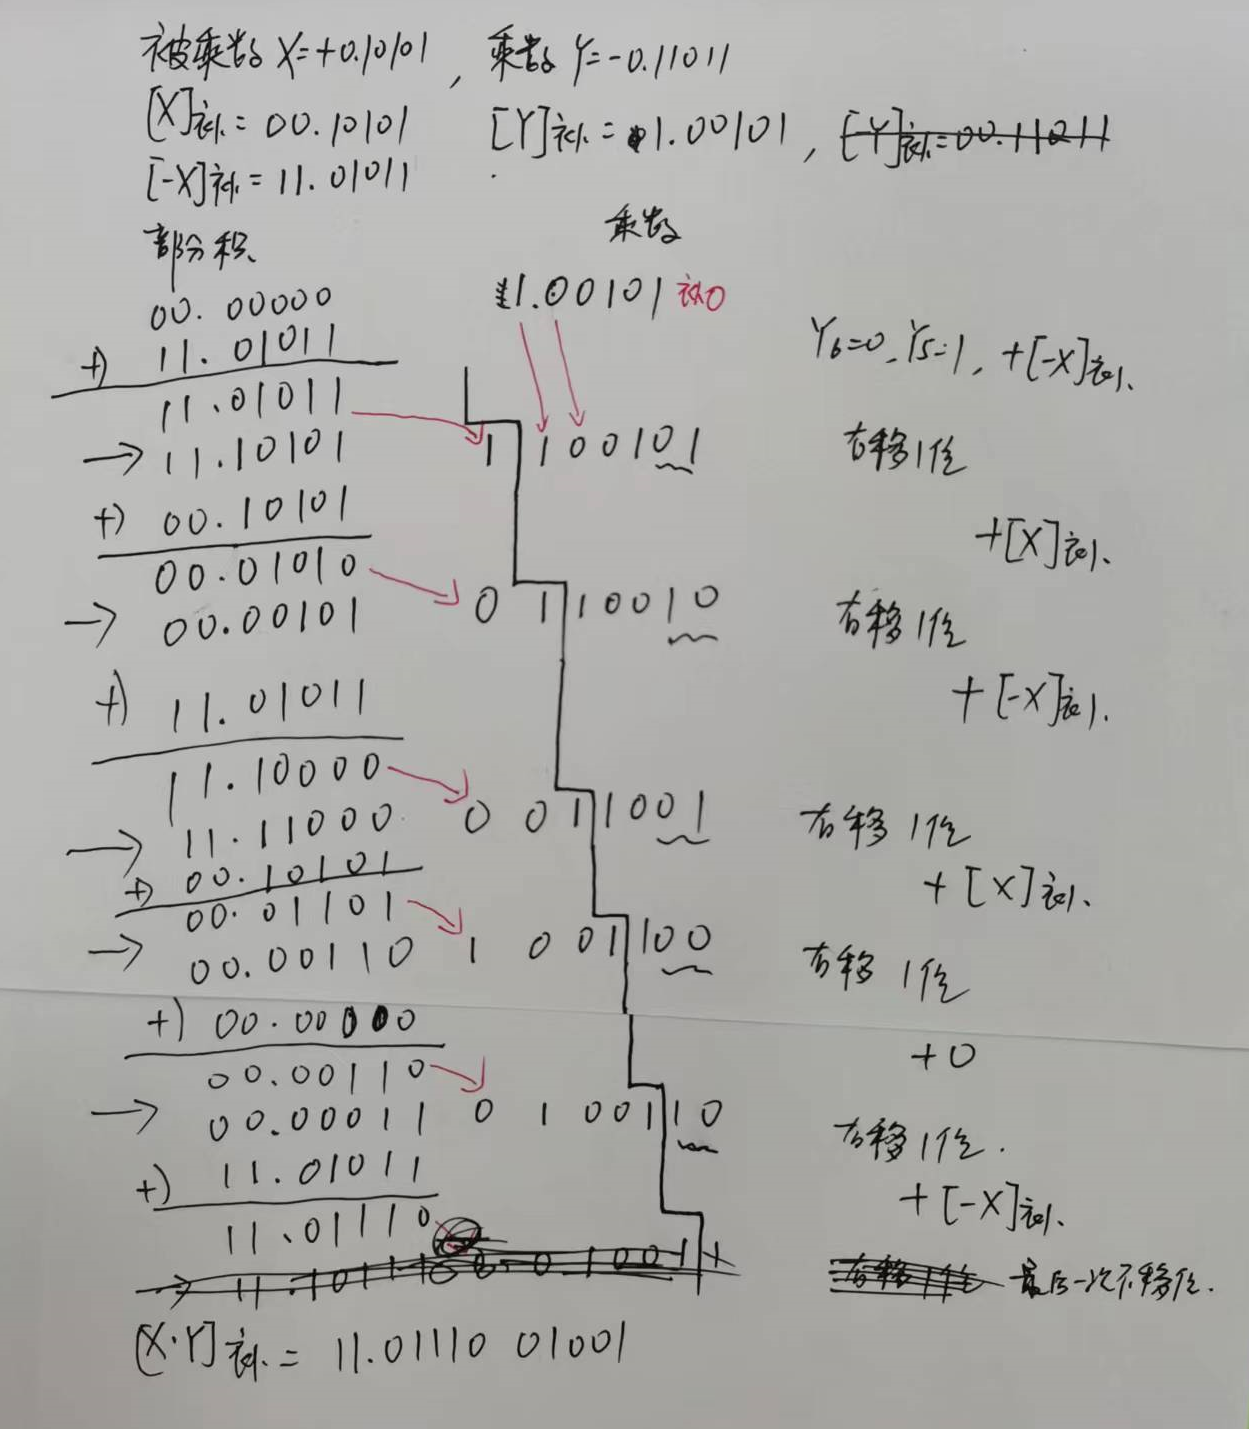 被乘数 X=+0.10101, 乘数 Y=-0.11011
[X]补=00.10101 [Y]补=1.00101, [-Y]补=00.11011
[-X]补=11.01011
部分积 乘数
00.00000 1.00101 补0
+) 11.01011 Y6=0, Y5=1, +[-X]补
11.01011
→ 11.10101 1 100101 右移1位
+) 00.10101 +[X]补
00.01010
→ 00.00101 0 110010 右移1位
+) 11.01011 +[-X]补
11.10000
→ 11.11000 0 011001 右移1位
+) 00.10101 +[X]补
00.01101
→ 00.00110 1 001100 右移1位
+) 00.00000 +0
00.00110
→ 00.00011 0 100110 右移1位.
+) 11.01011 +[-X]补
11.01110
→ 右移1位 最后一次不移位.
[X·Y]补= 11.01110 01001